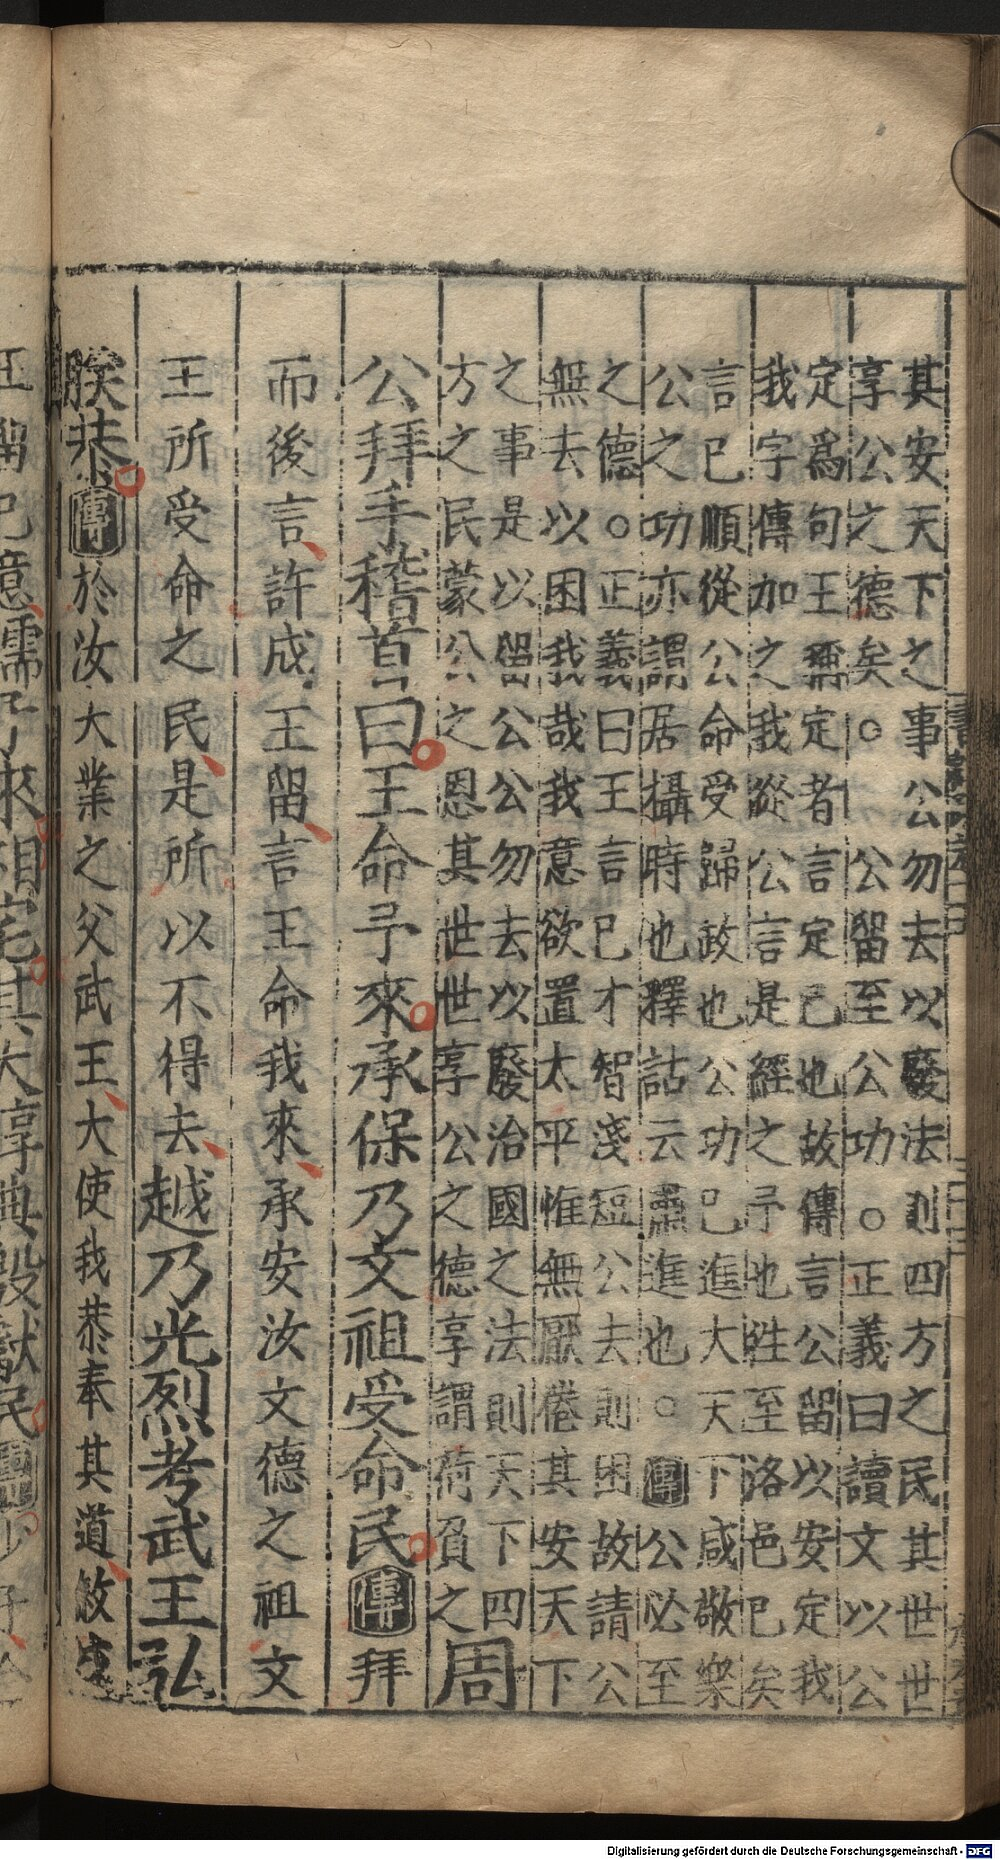 其安天下之事公勿去以廢法則四方之民其世世
享公之德矣○公留至公功○正義曰讀文以公
定爲句王稱定者言定己也故傳言公留以安定我
我字傳加之我縱公言是經之予也往至洛邑已矣
言已順從公命受歸政也公功已進大天下咸敬樂
公之功亦謂居攝時也釋詁云肅進也○傳公必至
之德○正義曰王言已才智淺短公去則困故請公
無去以困我哉我意欲置太平惟無厭倦其安天下
之事是以留公公勿去以廢治國之法則天下四
方之民蒙公之恩其世世享公之德享謂荷負之周
公拜手稽首曰王命予來承保乃文祖受命民傳拜
而後言許成王留言王命我來承安汝文德之祖文
王所受命之民是所以不得去越乃光烈考武王弘
朕恭傳於汝大業之父武王大使我恭奉其道敘成
王留己意孺子來相宅其大惇典殷獻民傳少子
Digitalisierung gefördert durch die Deutsche Forschungsgemeinschaft - DFG